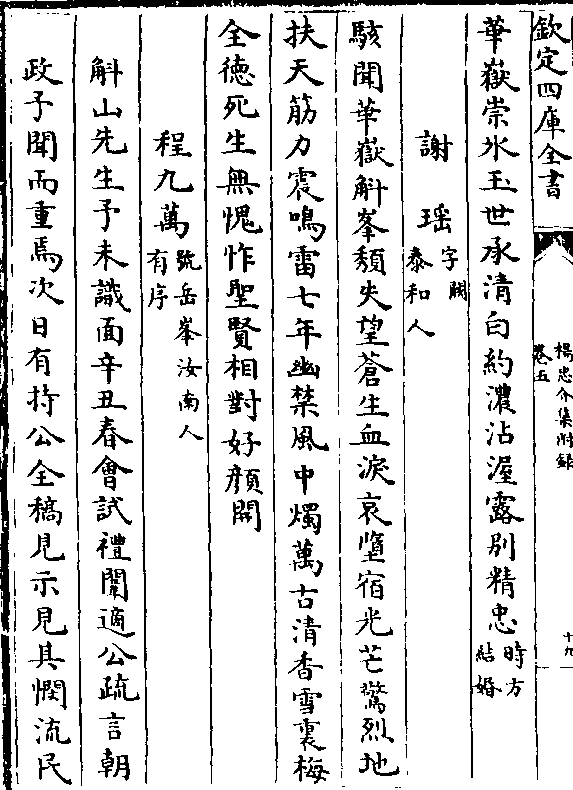 欽定四庫全書
楊忠介集附錄
卷五
十九
華嶽崇氷玉世承清白約濃沾渥露別精忠時方結婚
謝瑶字闕泰和人
駭聞華嶽斛峯頽失望蒼生血淚哀墮宿光芒驚烈地
扶天筋力震鳴雷七年幽禁風中燭萬古清香雪裏梅
全德死生無愧怍聖賢相對好顔開
程九萬號岳峯汝南人有序
斛山先生予未識面辛丑春會試禮闈適公疏言朝
政予聞而重焉次日有持公全稿見示見其憫流民